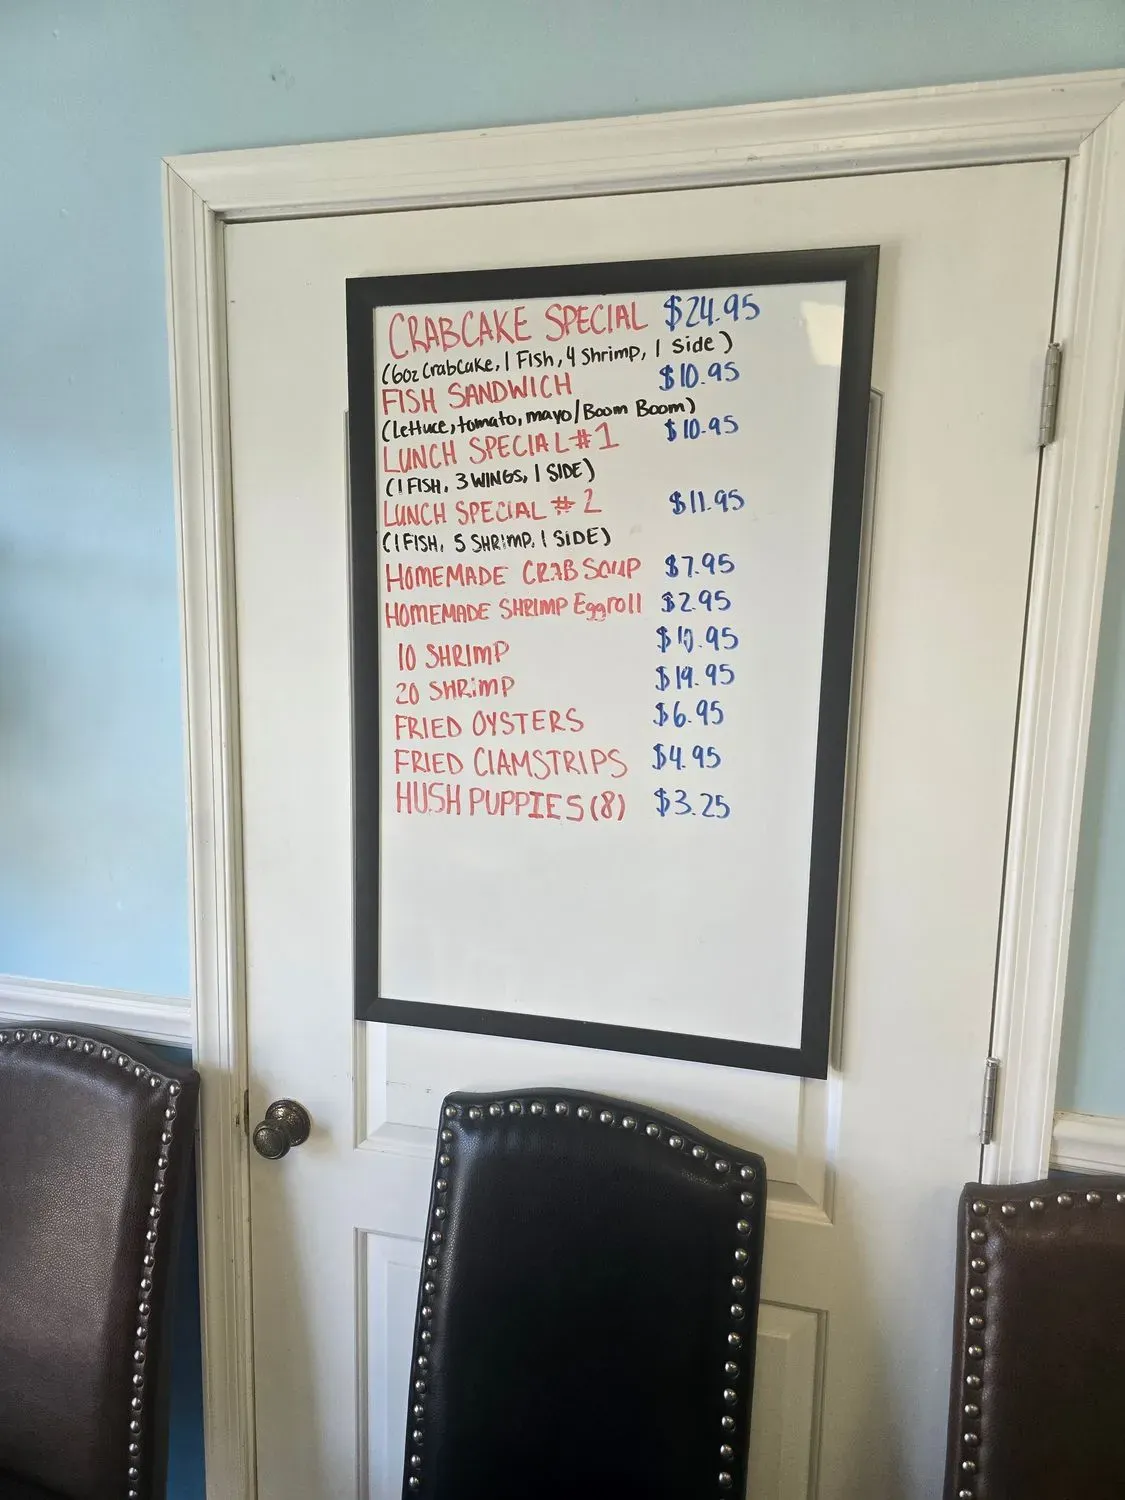 CRABCAKE SPECIAL $24.95
(6oz CrabCake, 1 Fish, 4 Shrimp, 1 Side)
FISH SANDWICH $10.95
(Lettuce, tomato, mayo/Boom Boom)
LUNCH SPECIAL #1 $10.95
(1 FISH, 3 WINGS, 1 SIDE)
LUNCH SPECIAL #2 $11.95
(1 FISH, 5 SHRIMP, 1 SIDE)
HOMEMADE CRAB SOUP $7.95
HOMEMADE SHRIMP Eggroll $2.95
10 SHRIMP $10.95
20 SHRIMP $19.95
FRIED OYSTERS $6.95
FRIED ClAMSTRIPS $4.95
HUSH PUPPIES (8) $3.25